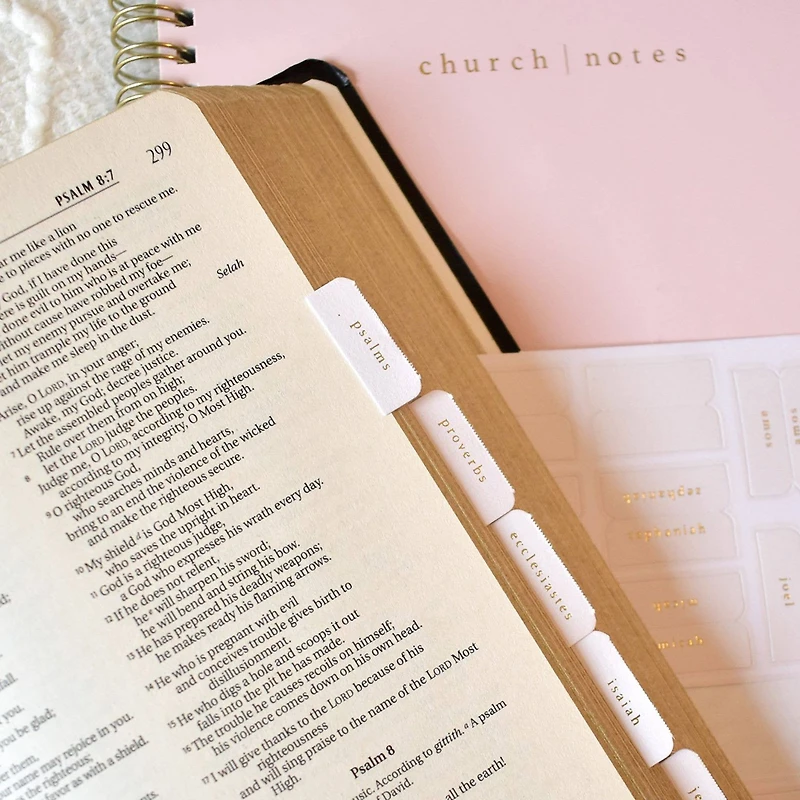 church | notes
299
PSALM 8:7
me like a lion
to pieces with no one to rescue me.
God, if I have done this
is guilt on my hands—
done evil to him who is at peace with me
without cause have robbed my foe—
let my enemy pursue and overtake me;
him trample my life to the ground
and make me sleep in the dust.
Selah
Arise, O LORD, in your anger;
rise up against the rage of my enemies.
Awake, my God; decree justice.
7 Let the assembled peoples gather around you.
Rule over them from on high;
8 let the LORD judge the peoples.
Judge me, O LORD, according to my righteousness,
according to my integrity, O Most High.
9 O righteous God,
who searches minds and hearts,
bring to an end the violence of the wicked
and make the righteous secure.
10 My shield d is God Most High,
who saves the upright in heart.
11 God is a righteous judge,
a God who expresses his wrath every day.
12 If he does not relent,
he e will sharpen his sword;
he will bend and string his bow.
13 He has prepared his deadly weapons;
he makes ready his flaming arrows.
14 He who is pregnant with evil
and conceives trouble gives birth to
disillusionment.
15 He who digs a hole and scoops it out
falls into the pit he has made.
16 The trouble he causes recoils on himself;
his violence comes down on his own head.
17 I will give thanks to the LORD because of his
righteousness
and will sing praise to the name of the LORD Most
High.
Psalm 8
According to gittith. a A psalm
of David.
all the earth!
you.
you be glad;
them.
name may rejoice in you.
the righteous;
favor as with a shield.
psalms
proverbs
ecclesiastes
isaiah
je
joel